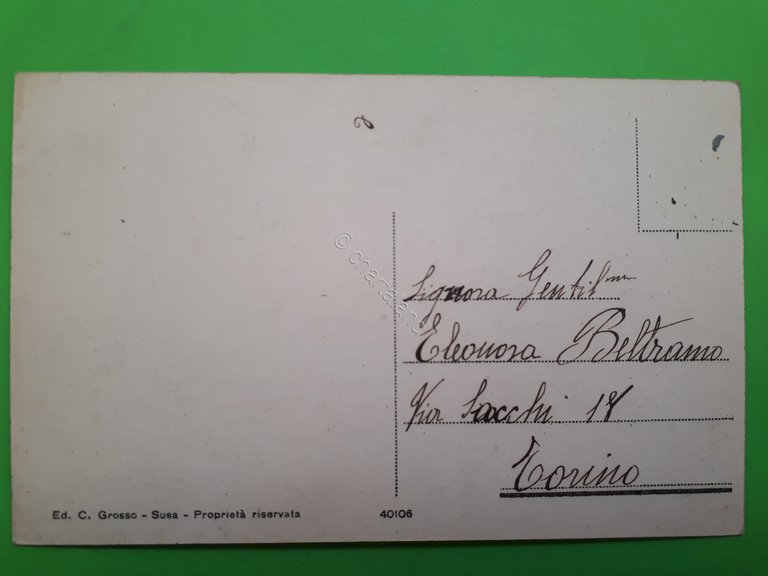 Signora Gentil.ma
Eleonora Beltramo
Via Sacchi 18
Torino
Ed. C. Grosso - Susa - Proprietà riservata
40106